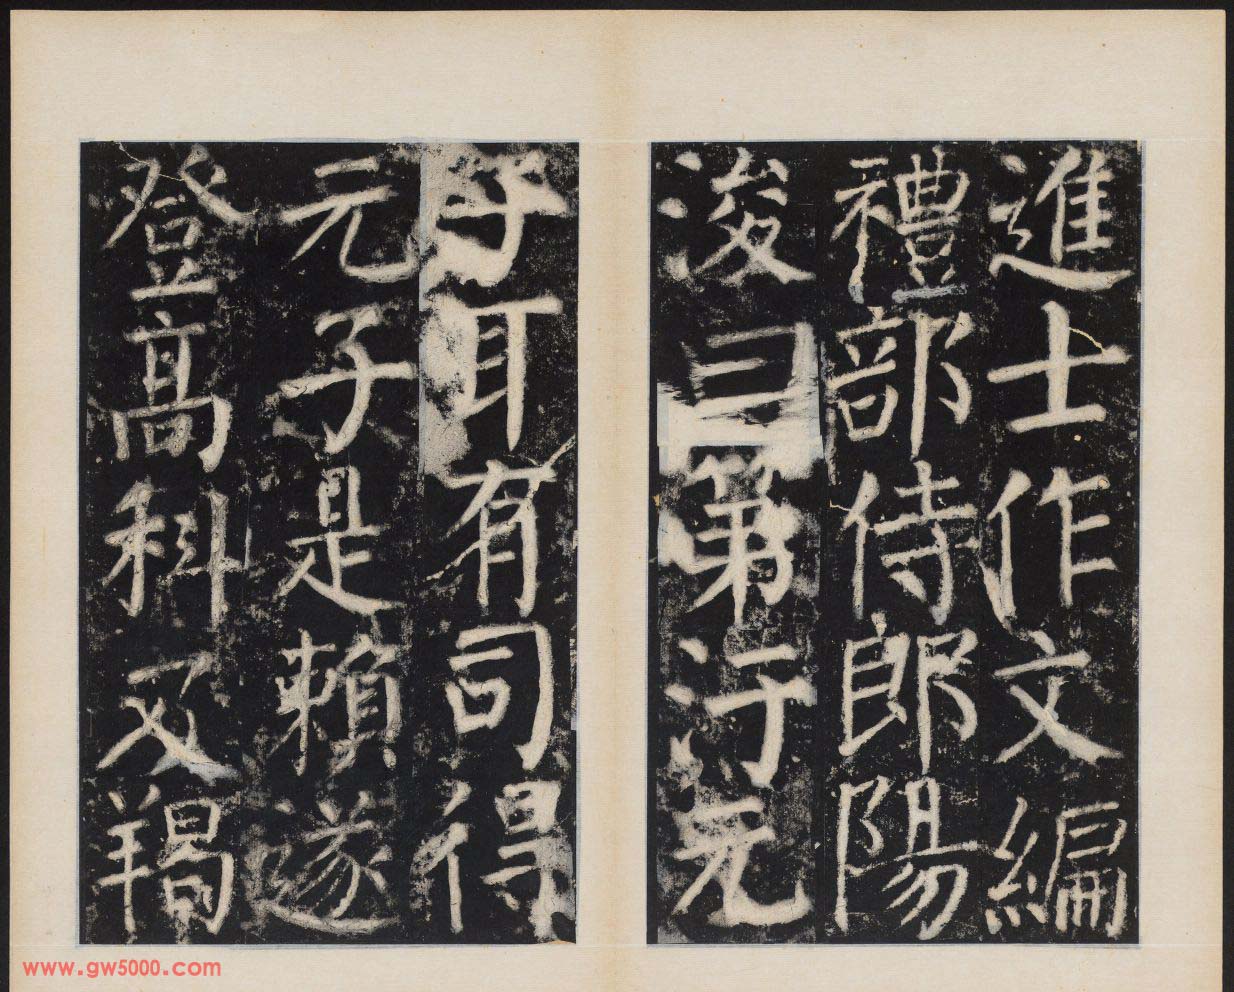 進士作文編
禮部侍郎陽
浚曰第汙元
子耳有司得
元子是賴遂
登高科及羯
www.gw5000.com